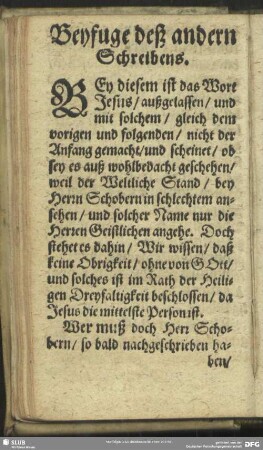 Beyfuge deß andern
Schreibens.
BEy diesem ist das Wort
Jesus / außgelassen / und
mit solchem / gleich dem
vorigen und folgenden / nicht der
Anfang gemacht / und scheinet / ob
sey es auß wohlbedacht geschehen /
weil der Weltliche Stand / bey
Herrn Schobern in schlechtem an-
sehen / und solcher Name nur die
Herren Geistlichen angehe. Doch
stehet es dahin / Wir wissen / daß
keine Obrigkeit / ohne von GOtt /
und solches ist im Rath der Heili-
gen Dreyfaltigkeit beschlossen / da
Jesus die mittelste Person ist.
Wer muß doch Herr Scho-
bern / so bald nachgeschrieben ha-
ben /
SLUB
DFG